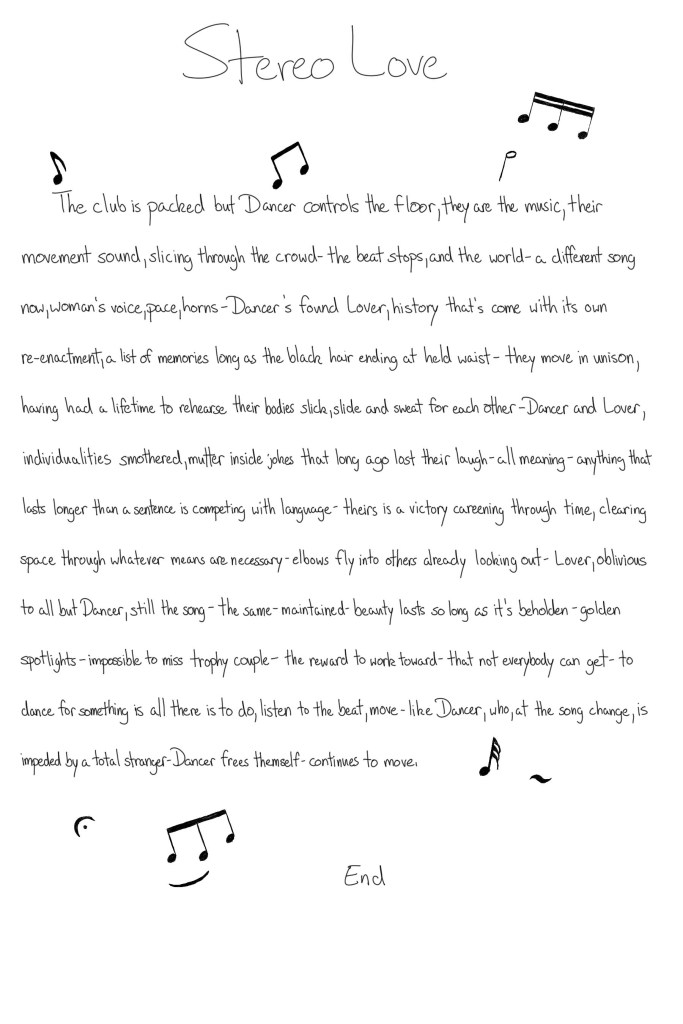 Stereo Love
The club is packed but Dancer controls the floor, they are the music, their
movement sound, slicing through the crowd- the beat stops, and the world- a different song
now, woman's voice, pace, horns - Dancer's found Lover, history that's come with its own
re-enactment, a list of memories long as the black hair ending at held waist - they move in unison,
having had a lifetime to rehearse their bodies slick, slide and sweat for each other - Dancer and Lover,
individualities smothered, mutter inside jokes that long ago lost their laugh - all meaning - anything that
lasts longer than a sentence is competing with language - theirs is a victory careening through time, clearing
space through whatever means are necessary - elbows fly into others already looking out - Lover, oblivious
to all but Dancer, still the song - the same - maintained - beauty lasts so long as it's beholden - golden
spotlights - impossible to miss trophy couple - the reward to work toward - that not everybody can get - to
dance for something is all there is to do, listen to the beat, move - like Dancer, who, at the song change, is
impeded by a total stranger - Dancer frees themself - continues to move.
End